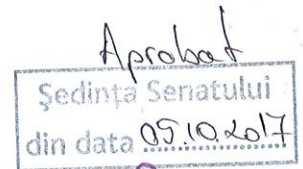 Aprobat
Ședința Senatului
din data 05.10.2017